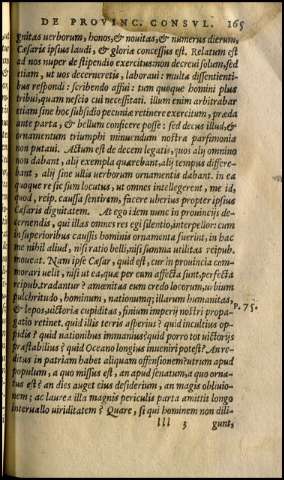 DE PROVINC. CONSVL. 165
gnitas uerborum, honos, & nouitas, & numerus dierum,
Cæsaris ipsius laudi, & gloriæ concessus est. Relatum est
ad nos nuper de stipendio exercitus: non decreui solum, sed
etiam, ut uos decerneretis, laboraui: multa dissentienti-
bus respondi: scribendo affui: tum quoque homini plus
tribui, quam nescio cui necessitati. illum enim arbitrabar
etiam sine hoc subsidio pecuniæ retinere exercitum, præda
ante parta, & bellum conficere posse: sed decus illud, &
ornamentum triumphi minuendum nostra parsimonia
non putaui. Actum est de decem legatis, quos alij omnino
non dabant, alij exempla quærebant, alij tempus differe-
bant, alij sine ullis uerborum ornamentis dabant. in ea
quoque re sic sum locutus, ut omnes intellegerent, me id,
quod, reip. caussa sentirem, facere uberius propter ipsius
Cæsaris dignitatem. At ego idem nunc in prouincijs de-
cernendis, qui illas omnes res egi silentio, interpellor: cum
in superioribus caussis hominis ornamenta fuerint, in hac
me nihil aliud, nisi ratio belli, nisi summa utilitas reipub.
moueat. Nam ipse Cæsar, quid est, cur in prouincia com-
morari uelit, nisi ut ea, quæ per eum affecta sunt, perfecta
reipub. tradantur? amœnitas eum credo locorum, urbium
pulchritudo, hominum, nationumq; illarum humanitas
& lepos, uictoriæ cupiditas, finium imperij nostri propa-
gatio retinet. quid illis terris asperius? quid incultius op-
pidis? quid nationibus immanius? quid porro tot uictorijs
præstabilius? quid Oceano longius inueniri potest? An re-
ditus in patriam habet aliquam offensionem? utrum apud
populum, a quo missus est, an apud senatum, a quo orna-
tus est? an dies auget eius desiderium, an magis obliuio-
nem; ac laurea illa magnis periculis parta amittit longo
interuallo uiriditatem? Quare, si qui hominem non dili-
lll 3 gunt,
p. 75.